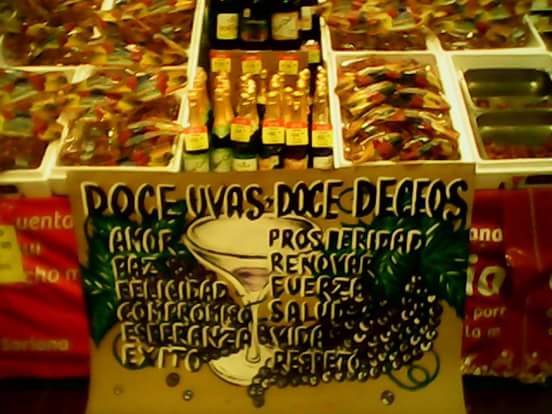 DOCE UVAS DOCE DECEOS
AMOR
PAZ
FELICIDAD
COMPROMISO
ESPERANZA
EXITO
PROSPERIDAD
RENOVAR
FUERZA
SALUD
VIDA
RESPETO
uenta
cho m
Soriana
ana